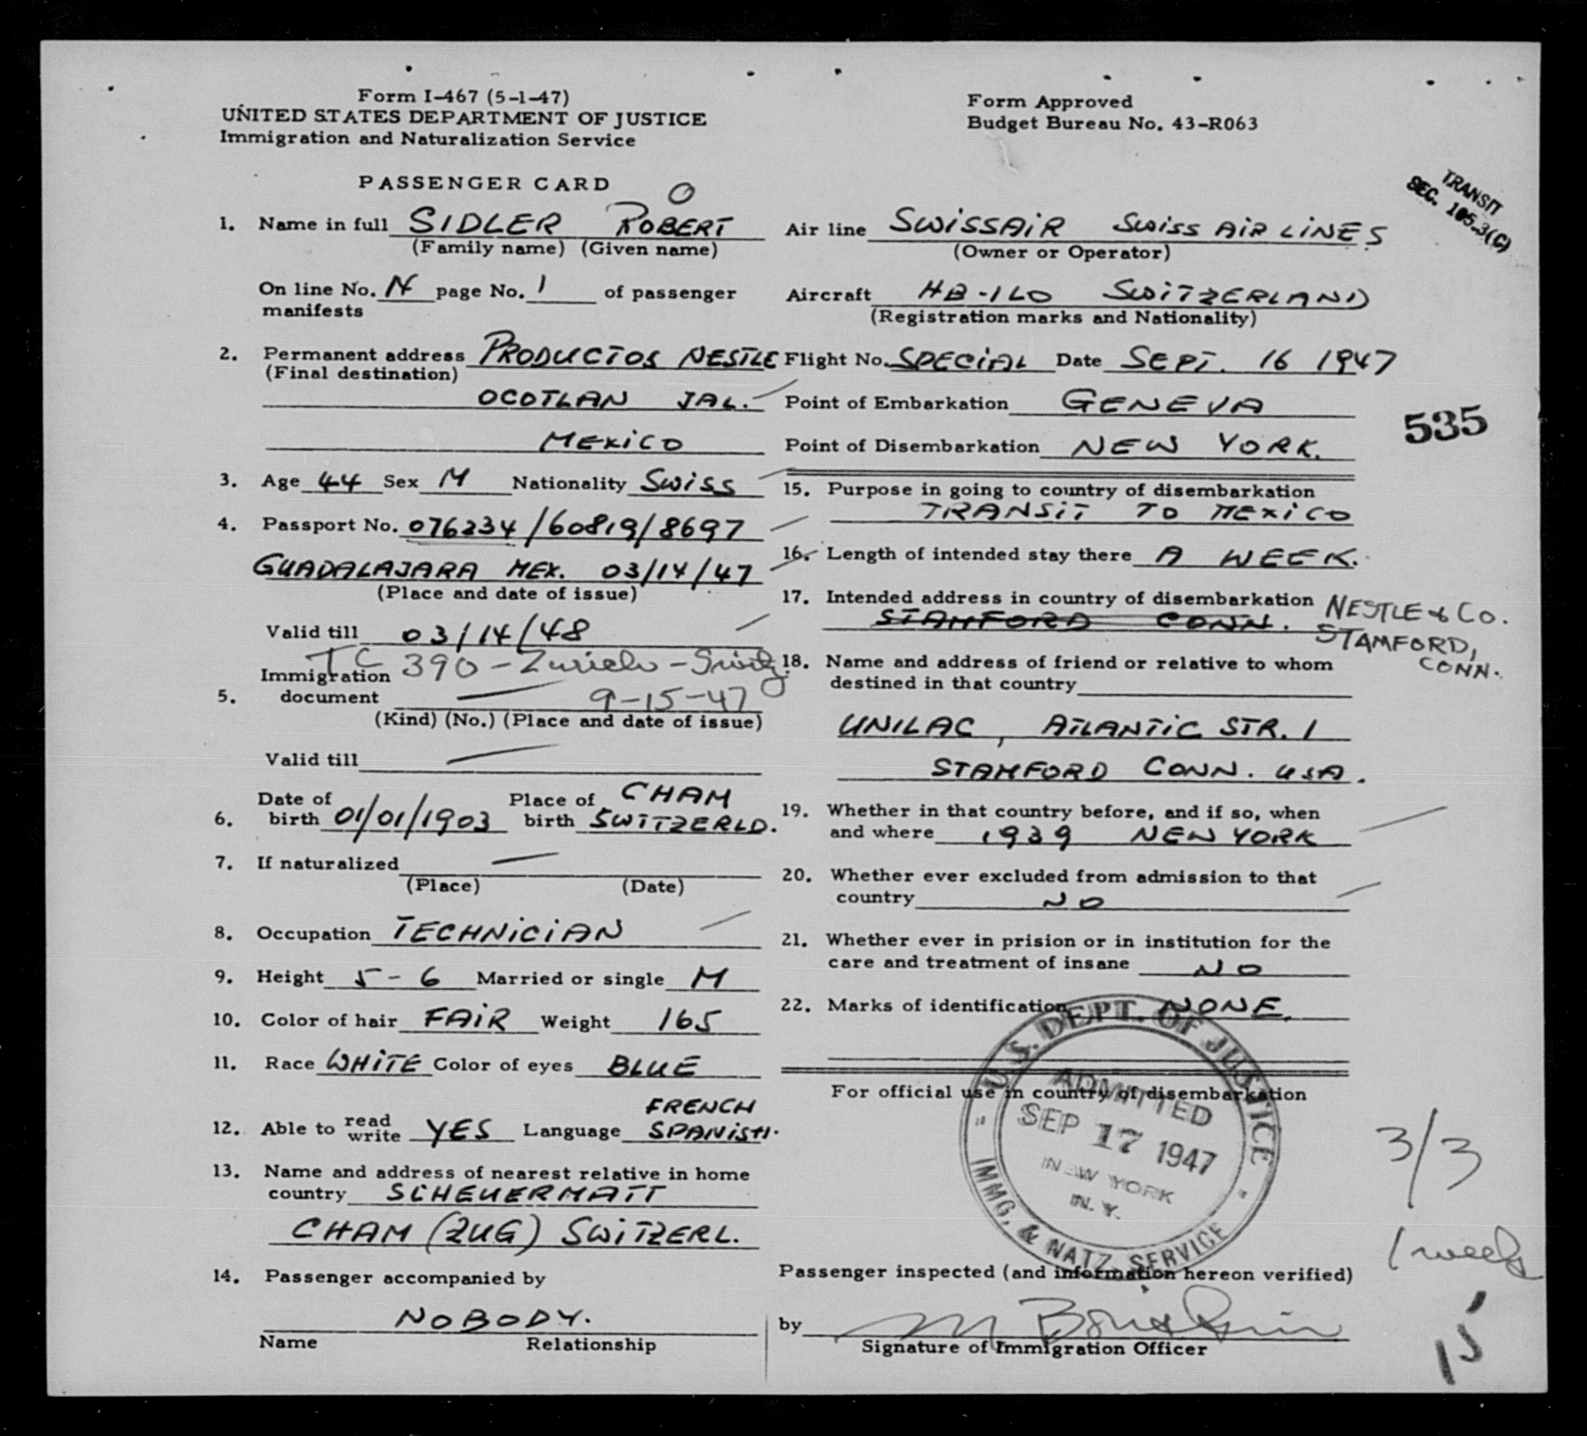 Form I-467 (5-1-47)
UNITED STATES DEPARTMENT OF JUSTICE
Immigration and Naturalization Service
Form Approved
Budget Bureau No. 43-R063
TRANSIT
SEC. 105.3(C)
PASSENGER CARD
O
1. Name in full SIDLER ROBERT
(Family name) (Given name)
On line No. page No. 1 of passenger
manifests
2. Permanent address PRODUCTOS NESTLE
(Final destination)
OCOTLAN JAL.
MEXICO
3. Age 44 Sex M Nationality SWISS
4. Passport No. 076234/60819/8697
GUADALAJARA MEX. 03/14/47
(Place and date of issue)
Valid till 03/14/48
TC 390 - Zurich -
Immigration
5. document 9-15-47
(Kind) (No.) (Place and date of issue)
Valid till
6. Date of birth 01/01/1903 Place of birth CHAM
SWITZERLD.
7. If naturalized
(Place) (Date)
8. Occupation TECHNICIAN
9. Height 5-6 Married or single M
10. Color of hair FAIR Weight 165
11. Race WHITE Color of eyes BLUE
12. Able to read write YES Language FRENCH
SPANISH.
13. Name and address of nearest relative in home
country SCHEUERMATT
CHAM (ZUG) SWITZERL.
14. Passenger accompanied by
NOBODY.
Name Relationship
Air line SWISSAIR SWISS AIR LINES
(Owner or Operator)
Aircraft HB-ILO SWITZERLAND
(Registration marks and Nationality)
Flight No. SPECIAL Date SEPT. 16 1947
Point of Embarkation GENEVA
Point of Disembarkation NEW YORK.
535
15. Purpose in going to country of disembarkation
TRANSIT TO MEXICO
16. Length of intended stay there A WEEK.
17. Intended address in country of disembarkation NESTLE & CO.
STAMFORD CONN. STAMFORD,
CONN.
18. Name and address of friend or relative to whom
destined in that country
UNILAC, ATLANTIC STR. 1
STAMFORD CONN. USA.
19. Whether in that country before, and if so, when
and where 1939 NEW YORK
20. Whether ever excluded from admission to that
country NO
21. Whether ever in prision or in institution for the
care and treatment of insane NO
22. Marks of identification NONE.
For official use in country of disembarkation
U.S. DEPT. OF JUSTICE
ADMITTED
SEP 17 1947
NEW YORK
N. Y.
IMMG. & NATZ. SERVICE
3/3
1 week
15
Passenger inspected (and information hereon verified)
by
Signature of Immigration Officer